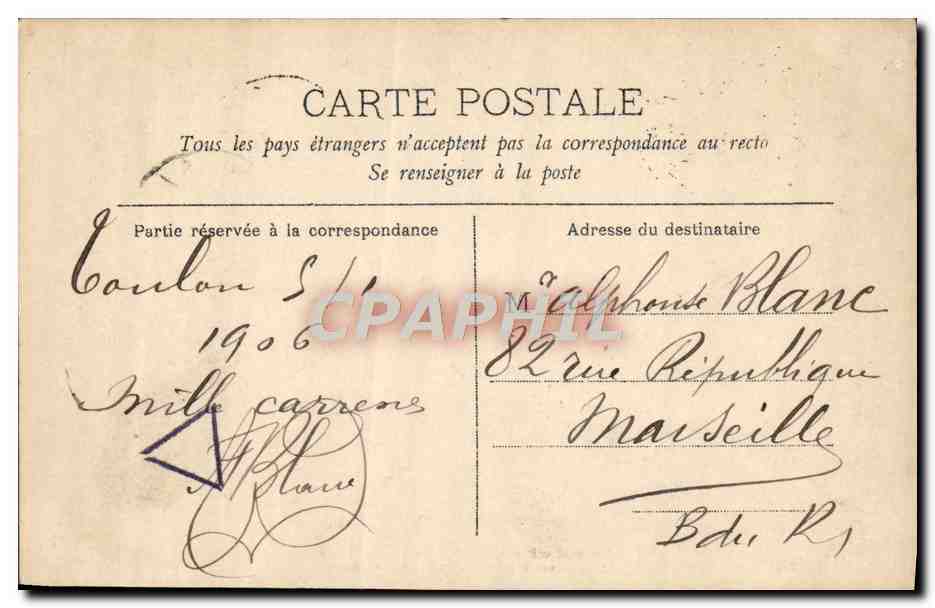 CARTE POSTALE
Tous les pays étrangers n'acceptent pas la correspondance au recto
Se renseigner à la poste
Partie réservée à la correspondance
Toulon 5/1
1906
Mille carrenes
A Blanc
Adresse du destinataire
Mr Alphonse Blanc
82 rue République
Marseille
B du R
CPAPHIL